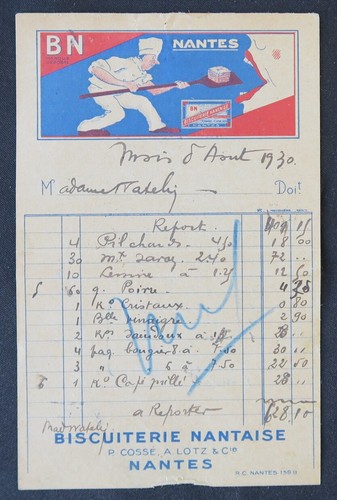 BN
NANTES
BN
BISCUITERIE NANTAISE
NANTES
Mois d'Aout 1930.
Madame Doit
Report 409 15
4 Pilchards 4.50 18 00
30 2.40 72 "
10 Lessive à 1.25 12 50
5 60 g. Poivre 4 25
1 Ko Cristaux 0 80
1 Blle vinaigre 2 90
2 Kos Saindoux à 28 "
4 paq. bougies 8 à 7.50 30 "
3 " 6 à 7.50 22 50
1 Ko Café grillé 28 "
à Reporter 628.10
BISCUITERIE NANTAISE
P. COSSÉ, A. LOTZ & Cie
NANTES
R.C. NANTES